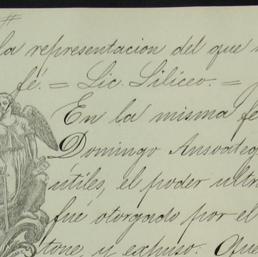 la representacion del que
fé. = Lic. Siliceo. =
En la misma fe
Domingo Ansoateg
utiles, el poder ultr
fué otorgado por el
tone y expuso. Que